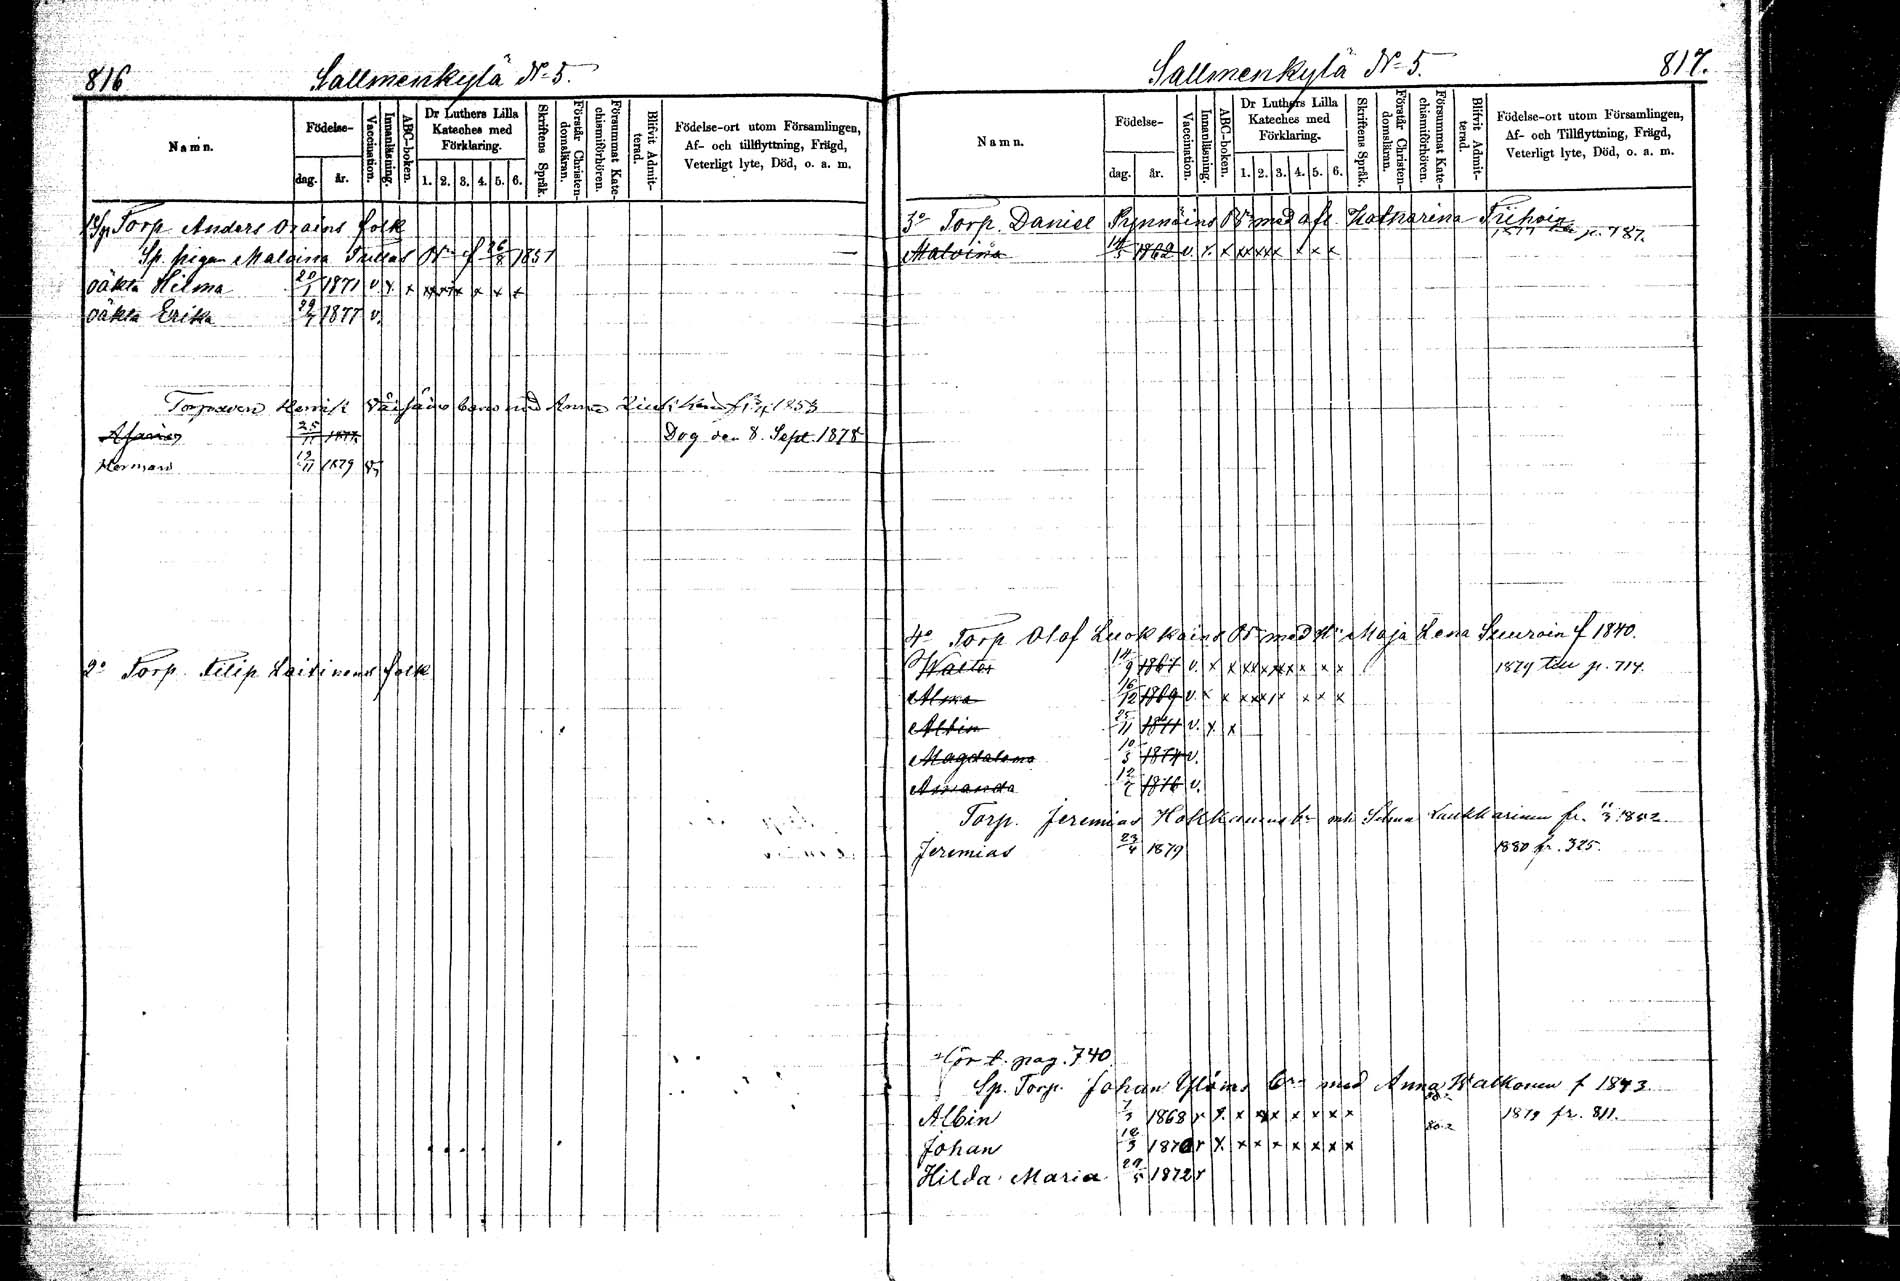 816
Sallmenkylä N=5.
Namn.
Födelse-
dag. år.
Vaccination.
Innanläsning.
ABC-boken.
Dr Luthers Lilla
Kateches med
Förklaring.
1. 2. 3. 4. 5. 6.
Skriftens Språk.
Förstår Christen-
domsläran.
Försummat Kate-
chismiförhören.
Blifvit Admit-
terad.
Födelse-ort utom Församlingen,
Af- och tillflyttning, Frägd,
Veterligt lyte, Död, o. a. m.
Torp. Anders Orains folk
Sp. pigan Malvina Br f 26/8 1851
oäkta Hilma 20/1 1871 v. x x xxxx x x x
oäkta Erika 1877 v.
Henrik barn med Anna 1853
25/11 1877 Dog den 8. Sept. 1878
Herman 12/11 1879 v.
2o Torp. Filip Laitinens folk
Sallmenkylä N=5.
817.
Namn.
Födelse-
dag. år.
Vaccination.
Innanläsning.
ABC-boken.
Dr Luthers Lilla
Kateches med
Förklaring.
1. 2. 3. 4. 5. 6.
Skriftens Språk.
Förstår Christen-
domsläran.
Försummat Kate-
chismiförhören.
Blifvit Admit-
terad.
Födelse-ort utom Församlingen,
Af- och Tillflyttning, Frägd,
Veterligt lyte, Död, o. a. m.
3o Torp. Daniel Pynnöins Br med afl. Katharina
p. 787.
Malvina 1862 v. x x xxxxx x x x
4o Torp Olof Luokkains Br med Maja Lena Suuroin f 1840.
Walter 14/9 1867 v. x x xxxxxx x x x 1879 till p. 714.
Alma 16/12 1869 v. x x xxxxx x x x
Albin 25/11 1871 v. x x
Magdalena 10/5 1874 v.
Amanda 1876 v.
Torp. Jeremias Hokkanens br med Selma Laukkarinen fr. 11/3 1852.
Jeremias 23/4 1879 1880 fr. 325.
Hör t. pag. 740
Sp. Torp. Johan br med Anna Walkonen f 1843
Albin 1868 v x. x xx x x x x 1879 fr. 811.
Johan 18/3 1870 v x. x x x x x x x
Hilda Maria 29/5 1872 v